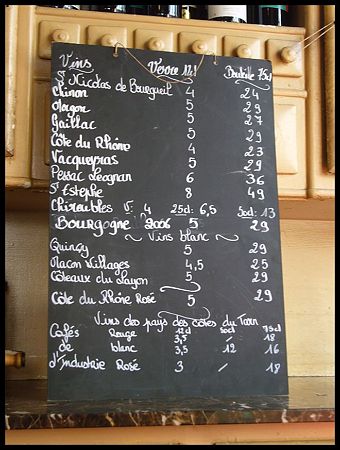 Vins Verre 12cl Bouteille 75cl
St Nicolas de Bourgueil 4 24
Chinon 4 24
Morgon 5 29
Gaillac 5 27
Côte du Rhône 4 23
Vacqueyras 5 29
Pessac Léognan 6 36
St Estèphe 8 49
Chiroubles V. 4 25cl: 6,5 50cl: 13
Bourgogne 2006 5 29
Vins blanc
Quinçy 5 29
Macon Villages 4,5 25
Côteaux du Layon 5 29
Côte du Rhône Rosé 5 29
Vins des pays des côtes du Tarn
Cafés Rouge 3,5 18
de blanc 3,5 12 16
d'Industrie Rosé 3 / 18